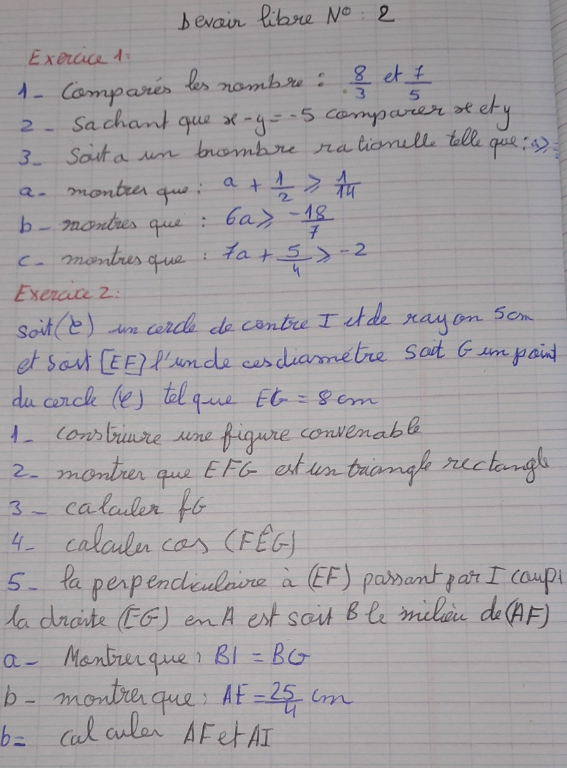 Devoir libre N° : 2
Exercice 1:
1 - Comparés les nombre : 8/3 et 7/5
2 - Sachant que x - y = -5 comparer x et y
3 - Soit a un nombre rationelle telle que :
a - montrer que : a + 1/2 ≥ 1/14
b - montres que : 6a ≥ -18/7
c - montres que : 7a + 5/4 ≥ -2
Exercice 2:
soit (C) un cercle de centre I et de rayon 5cm
et soit [EF] l'un de ces diamétre Soit G un point
du cercle (C) tel que EG = 8 cm
1 - construire une figure convenable
2 - montrer que EFG est un triangle rectangle
3 - calculer FG
4 - calculer cos (FÊG)
5 - la perpendiculaire à (EF) passant par I coupe
la droite (EG) en A est soit B le milieu de (AF)
a - Montrer que : BI = BG
b - montrer que : AE = 25/4 cm
b = calculer AF et AI